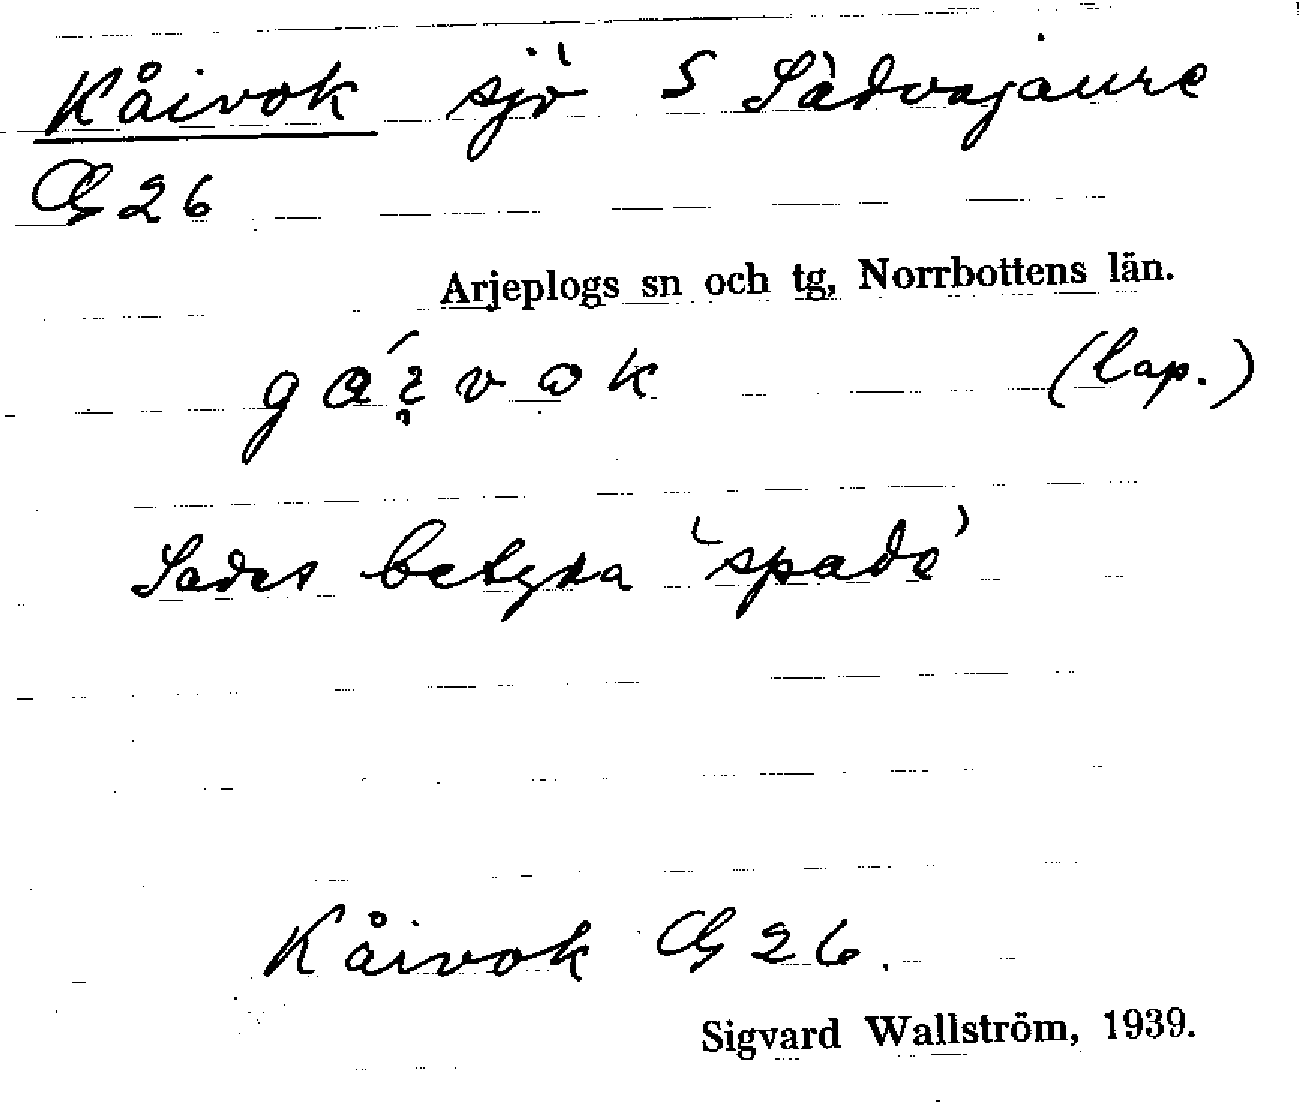 Kåivok sjö S Sädvajaure
G 26
Arjeplogs sn och tg, Norrbottens län.
(lap.)
Sades betyda 'spade'
Kåivok G 26.
Sigvard Wallström, 1939.